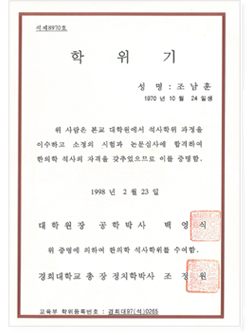 석제8970호
학 위 기
성 명 : 조 남 훈
1970 년 10 월 24 일생
위 사람은 본교 대학원에서 석사학위 과정을
이수하고 소정의 시험과 논문심사에 합격하여
한의학 석사의 자격을 갖추었으므로 이를 증명함.
1998 년 2 월 23 일
대 학 원 장 공 학 박 사 백 영 식
위 증명에 의하여 한의학 석사학위를 수여함.
경희대학교 총 장 정치학박사 조 정 원
교육부 학위등록번호 : 경희대97(석)0265